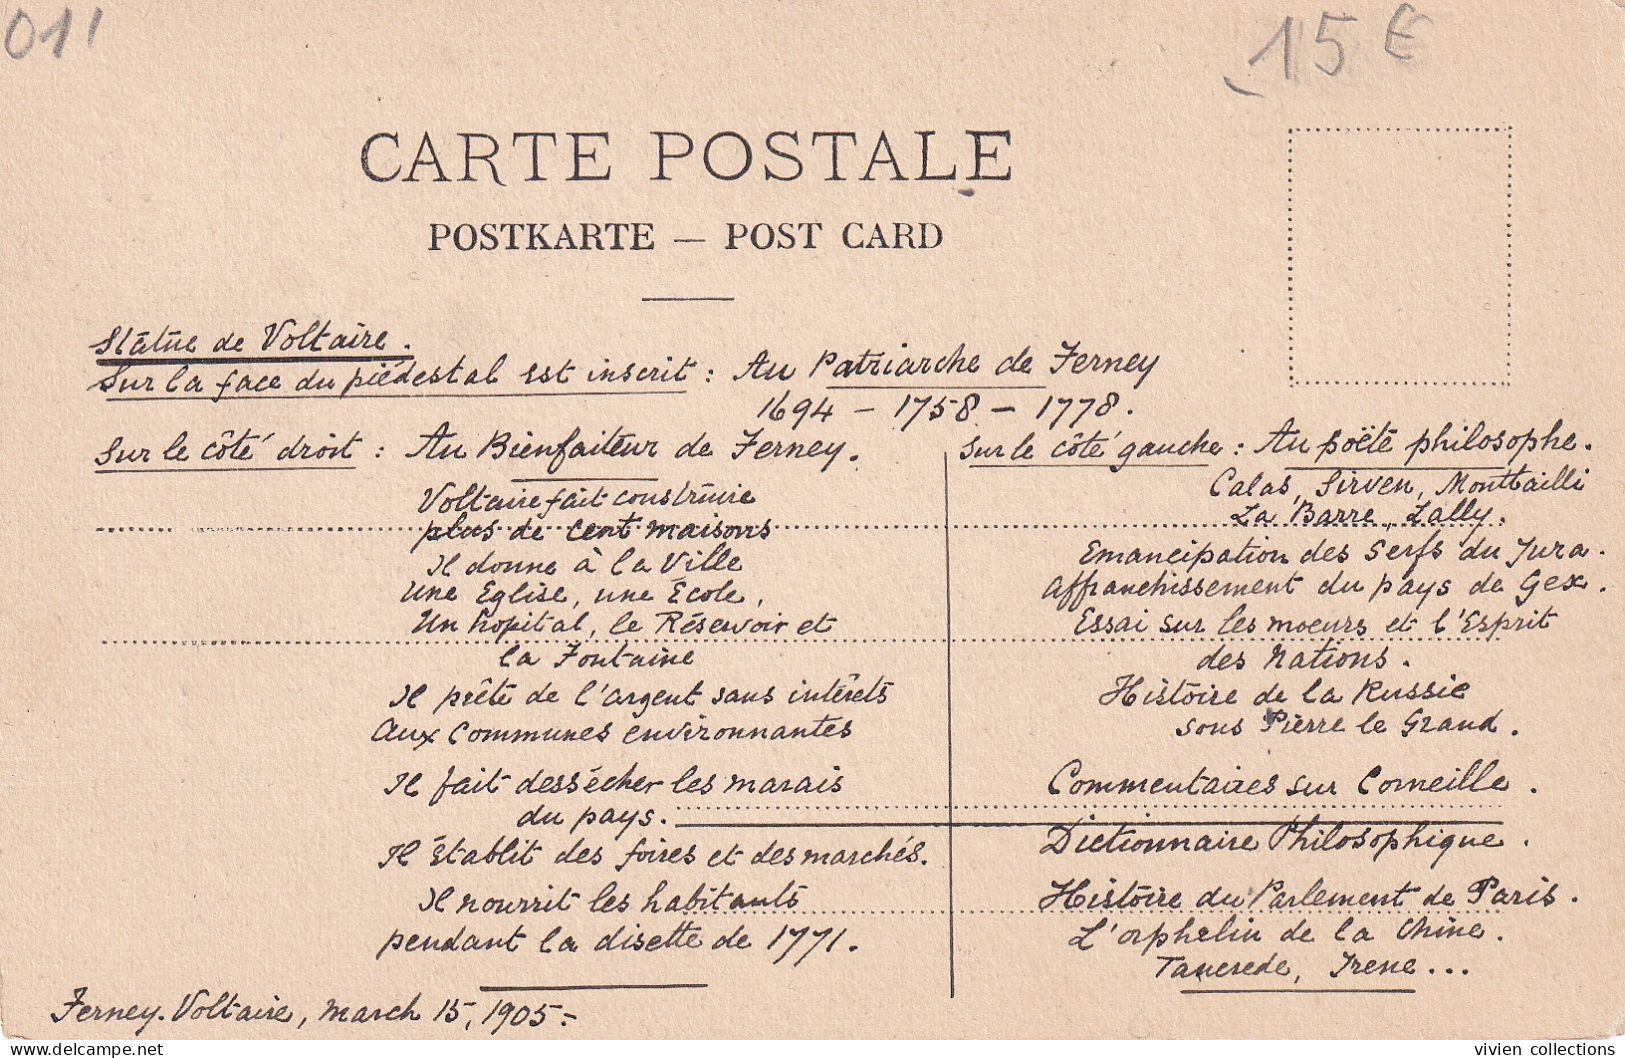 011
15 €
CARTE POSTALE
POSTKARTE — POST CARD
Statue de Voltaire.
Sur la face du piédestal est inscrit : Au Patriarche de Ferney
1694 – 1758 – 1778.
Sur le côté droit : Au Bienfaiteur de Ferney.
Voltaire fait construire
plus de cent maisons
Il donne à la Ville
Une Eglise, une École,
Un hopital, le Réservoir et
la Fontaine
Il prête de l'argent sans intérêts
Aux Communes environnantes
Il fait dessécher les marais
du pays.
Il établit des foires et des marchés.
Il nourrit les habitants
pendant la disette de 1771.
Sur le côté gauche : Au poëte philosophe.
Calas, Sirven, Montbailli
La Barre, Lally.
Emancipation des Serfs du Jura.
Affranchissement du pays de Gex.
Essai sur les moeurs et l'Esprit
des Nations.
Histoire de la Russie
sous Pierre le Grand.
Commentaires sur Corneille.
Dictionnaire Philosophique.
Histoire du Parlement de Paris.
L'orphelin de la Chine.
Tancrede, Irene...
Ferney-Voltaire, March 15, 1905.-
vivien collections